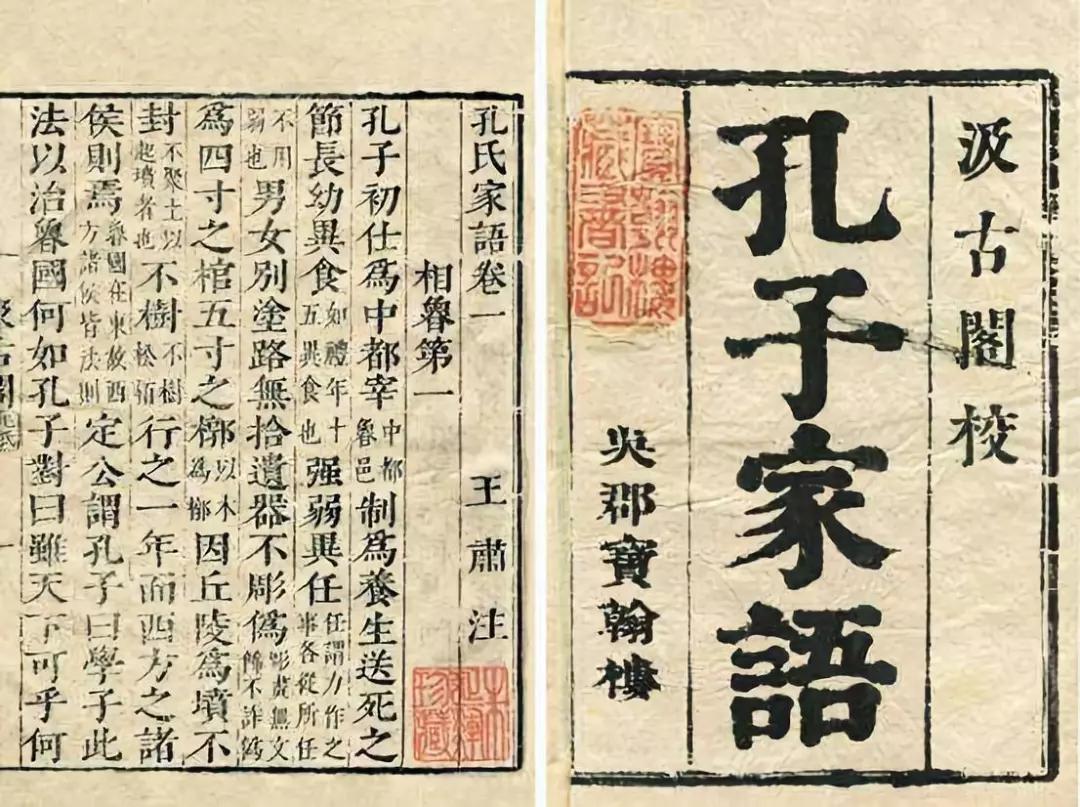 汲古閣校
孔子家語
吳郡寶翰樓
孔氏家語卷一 王肅注
相魯第一
孔子初仕爲中都宰中都魯邑制爲養生送死之
節長幼異食如禮年十五異食也强弱異任任謂力作之事各從所任
不用弱也男女別塗路無拾遺器不彫僞彫畫無文飾不詐僞
爲四寸之棺五寸之槨以木爲槨因丘陵爲墳不
封不聚土以起墳者也不樹不樹松栢行之一年而西方之諸
侯則焉魯國在東故西方諸侯皆法則定公謂孔子曰學子此
法以治魯國何如孔子對曰雖天下可乎何